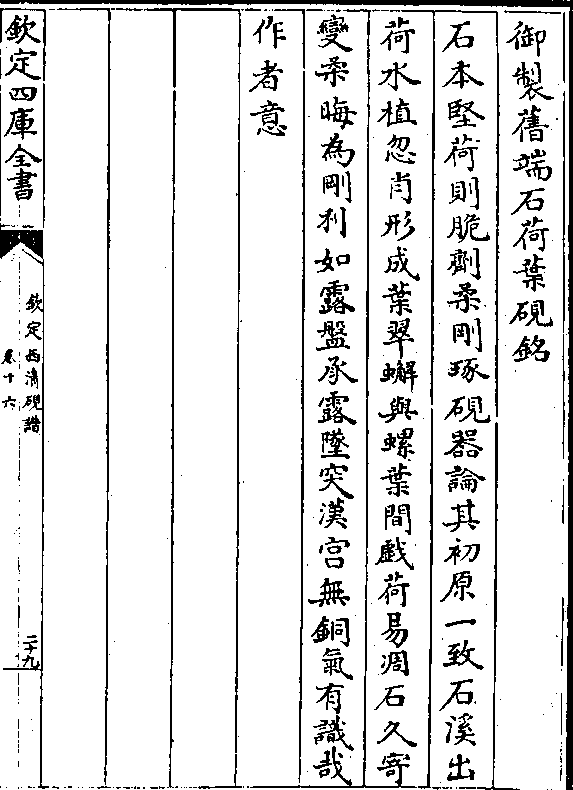 御製舊端石荷葉硯銘
石本堅荷則脆劑柔剛琢硯器論其初原一致石溪出
荷水植忽肖形成葉翠蠏與螺葉間戲荷易凋石久寄
變柔晦為剛利如露盤承露墜突漢宮無銅氣有識哉
作者意
欽定四庫全書
欽定西清硯譜
卷十六
二十九